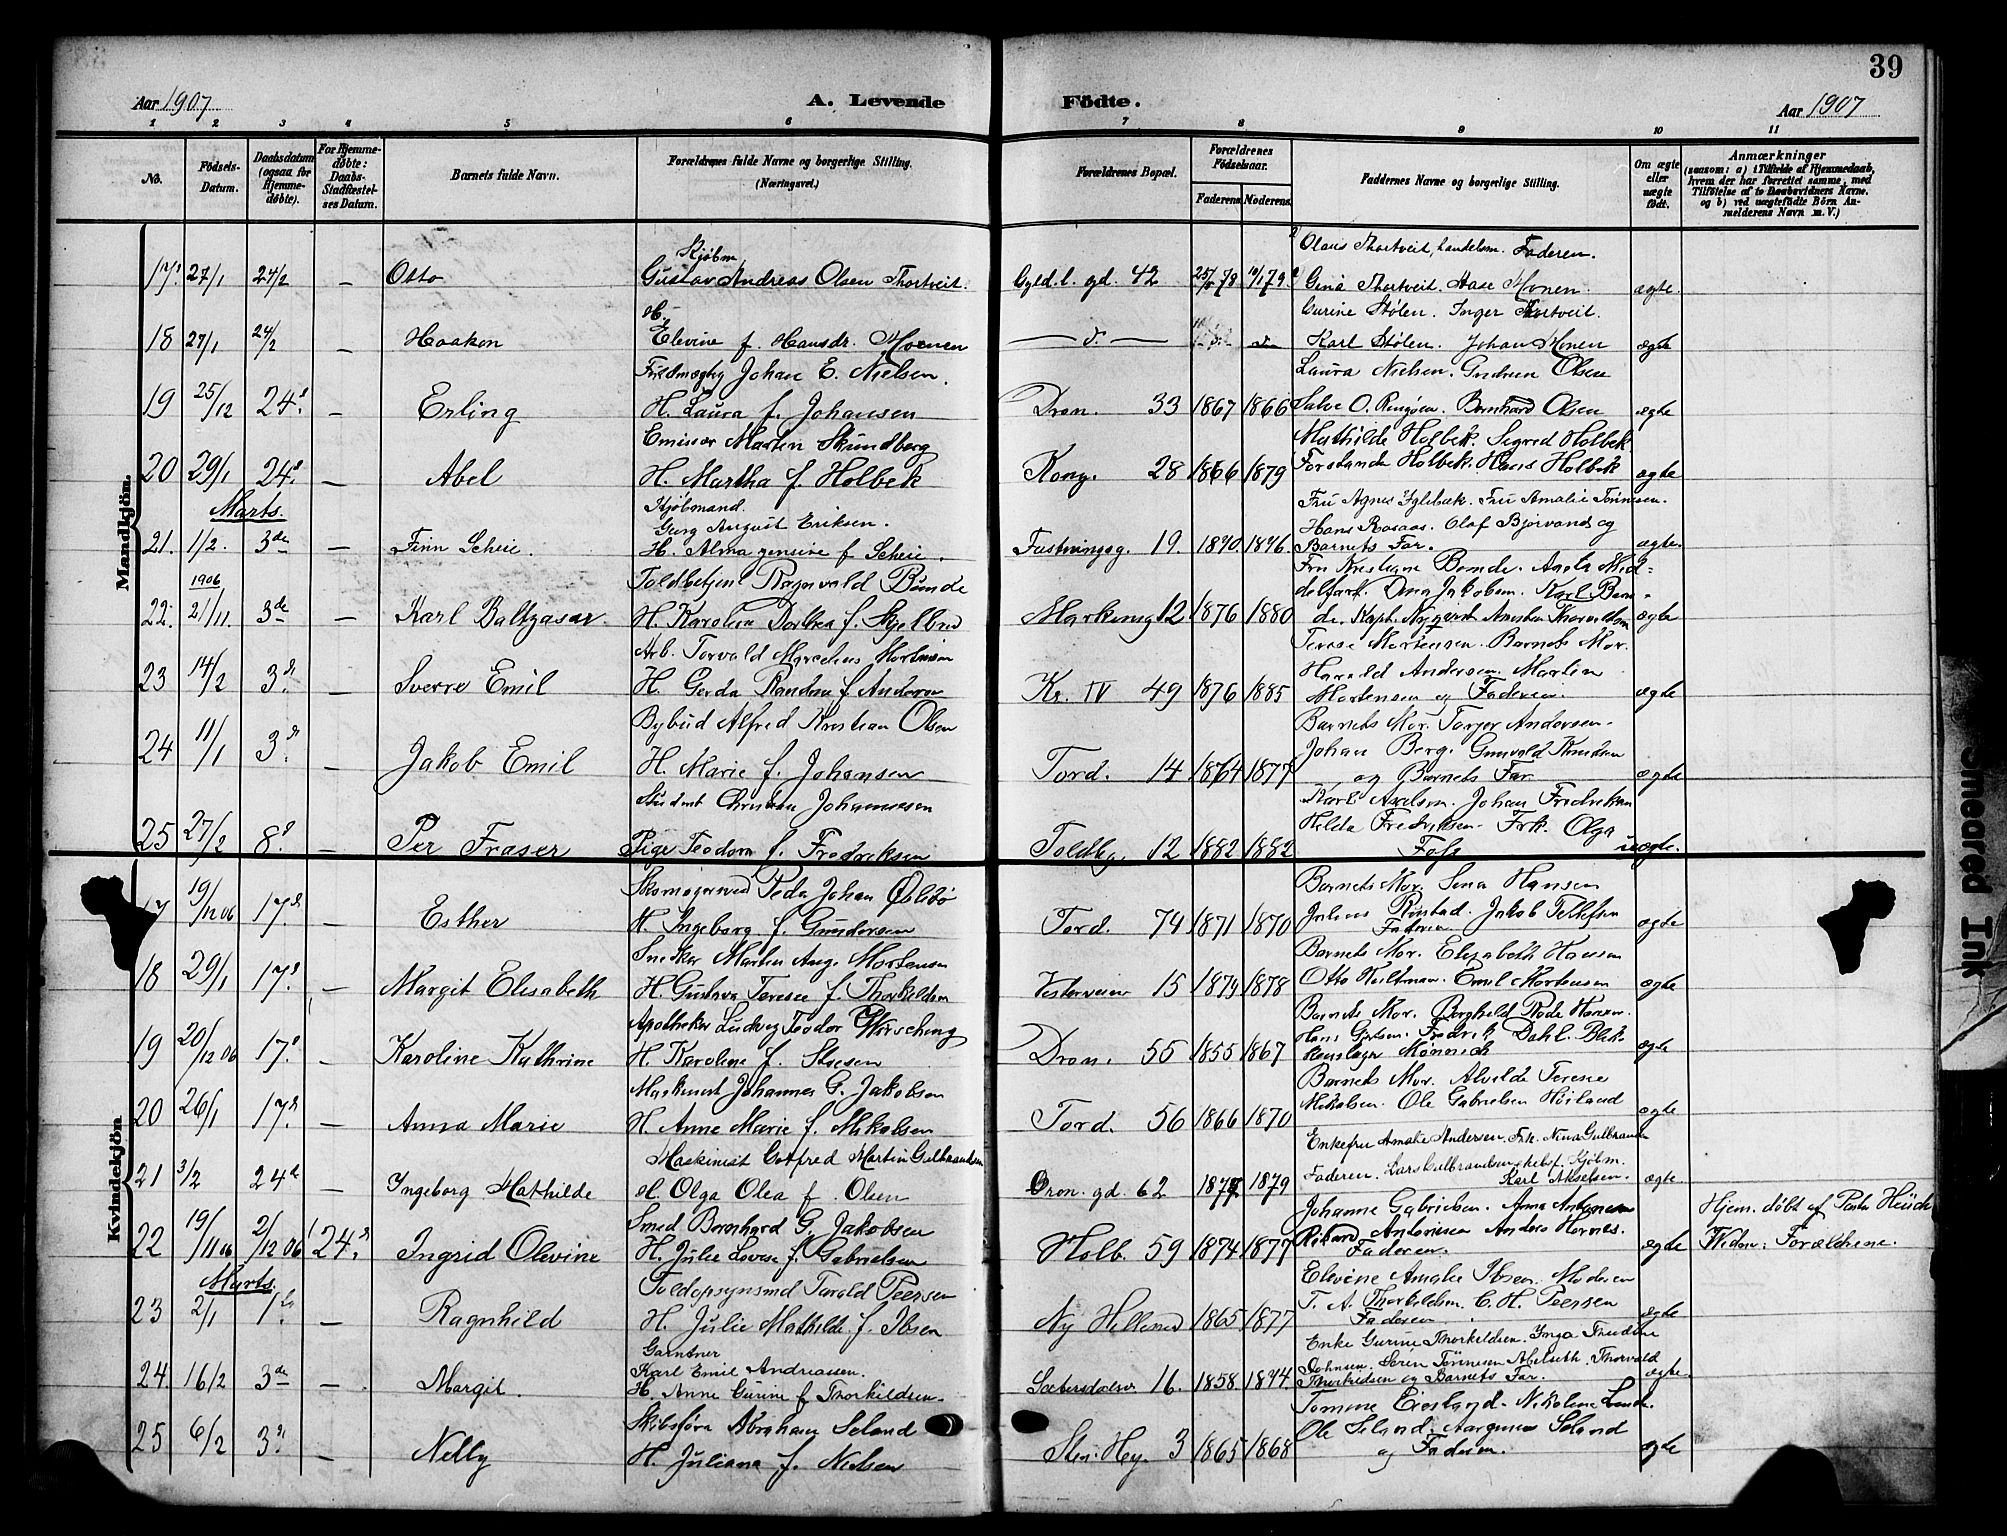 39
Aar 1907
A. Levende Födte.
Aar 1907
1 2 3 4 5 6 7 8 9 10 11
No.
Födsels-Datum.
Daabsdatum (ogsaa for Hjemme-døbte).
For Hjemme-døbte: Daabs-Stadfæstel-ses Datum.
Barnets fulde Navn.
Forældrenes fulde Navne og borgerlige Stilling. (Næringsvei.)
Forældrenes Bopæl.
Forældrenes Födselsaar.
Faderens Moderens
Faddernes Navne og borgerlige Stilling.
Om ægte eller uægte født.
Anmærkninger
(saasom: a) i Tilfælde af Hjemmedaab,
hvem der har forrettet samme, med
Tilføielse af to Daabsvidners Navne.
og b) ved uægtefödte Börn An-
melderens Navn m. V.)
Mandkjön.
Kjøbm Olaus Thortveit, handelsm. Faderen.
17. 27/1 24/2 – Otto Gustav Andreas Olsen Thortveit. Gyld. l. gd. 42 Gina Thortveit. Aase Monen. ægte.
H. Gurine Stølen. Inger Thortveit.
18 27/1 24/2 – Haakon Elevine f. Hansdr. Moenen – d. – Karl Stølen. Johan Monen ægte
Fuldmægtig Johan E. Nielsen. Laura Nielsen. Gudrun Olsen
19 25/12 24. – Erling H. Laura f. Johansen Dron. 33 1867 1866 Salve O. Ringøen. Bernhard Olsen ægte
Emissær Martin Skundberg Mathilde Holbek. Sigrid Holbek
20 29/1 24. – Abel H. Martha f. Holbek Kong. 28 1866 1879 Forstander Holbek. Hans Holbek ægte
Marts.
Kjøbmand. Fru Agnes Yglebæk. Fru Amalie Tönnesen.
Georg August Eriksen. Hans Rosaas. Olaf Bjorvand og
21. 1/2. 3de – Finn Scheie. H. Alma f Scheie. Fæstningsg. 19. Barnets Far. ægte.
1906 Toldbetjent Ragnvald Bunde
22. 21/11 3de – Karl Baltzasar. H. Karoline Dorthea f. Skjelbred Markensg 12 1876 1880 de. Kapt. Nygaard ægte
Arb. Torvald Marselius Mortensen Terese Mortensen. Barnets Mor.
Harald Andersen. Martin
23 14/2 3. – Sverre Emil H. Gerda Randine f. Andersen Kr. IV 49 1876 1885 Mortensen og Faderen. ægte
Bybud Alfred Kristian Olsen Barnets Mor. Torger Andersen.
Johan Berg. Gunvald Knudsen
24 11/1 3. – Jakob Emil H. Marie f. Johansen Tord. 14 1864 1877 og Barnets Far ægte
Student Christian Johannesen Karl Axelsen. Johan Fredriksen
Hilda Fredriksen. Frk. Olga
25 27/2 8. – Per Fraser Pige Teodora f. Fredriksen Toldbg. 12 1882 1882 Foss uægte.
Kvindekjön
Barnets Mor. Sina Hansen
17 19/12 06 17. – Esther H. Ingeborg f. Gundersen Tord. 74 1871 1870 Julius Rönstad. Jakob Tellefsen ægte
Faderen
Snekker Martin Aug. Mortensen Barnets Mor. Elisabeth Hansen
18 29/1 17. – Margit Elisabeth H. Gustava Terese f. Thorkildsen Vesterveien 15 1879 1878 Otto Hultman. Emil Mortensen ægte
Apotheker Ludvig Teodor Barnets Mor. Borghild Rode Hansen
19 20/12 06 17. – Karoline Kathrine H. Karoline f. Dron. 55 1855 1867 Fredrik Dahl. Blik- ægte
kenslager Mönnich
Maskinist Johannes G. Jakobsen Barnets Mor. Alvilde Terese
20 26/1 17. – Anna Marie H. Anne Marie f. Mikalsen Tord. 56 1866 1870 Mikalsen. Ole Gabrielsen Höiland ægte
Maskinist Gotfred Martin Gulbrandsen Enkefru Amalie Andersen. Frk. Nina Gulbrandsen
21 3/2 24 – Ingeborg Mathilde H. Olga Olea f. Olsen Dron. gd. 62 1877 1879 Faderen. Lars Gulbrandsen Kjöbm.
Karl Akselsen. ægte
Smed Bernhard G. Jakobsen Johanne Gabrielsen. Anna Antonsen Hjem. döbt af Pastor Heuch
22 19/11 06 2/12 06 24. Ingrid Olevine H. Julie Lovise f. Gabrielsen Holb. 59 1874 1877 Rikard Antonisen Anders Hornes. ægte Vidn: Forældrene.
Faderen.
Marts.
Toldopsynsmd Tarald Peersen Elevine Amalie Ibsen. Moderen
23 2/1 1 – Ragnhild H. Julie Mathilde f. Ibsen Ny Hellesund 1865 1877 T. A. Thorkildsen. C. H. Peersen ægte
Faderen
Gartner Enke Gurine Thorkildsen. Inga
Karl Emil Andreassen. Johnsen. Sören Tönnesen Abelseth. Thorvald
24. 16/2 3de – Margit. H. Anne Gurine f Thorkildsen. Sætersdalsv 16. 1858 Thorkildsen og Barnets Far. ægte.
Skibsföre Abraham Seland Tomine Nikoline Lunde.
25 6/2 3. – Nelly H. Juliana f. Nielsen Sten. Hey. 3 1865 1868 Ole Seland. Seland ægte
og Faderen.
Smeared Ink